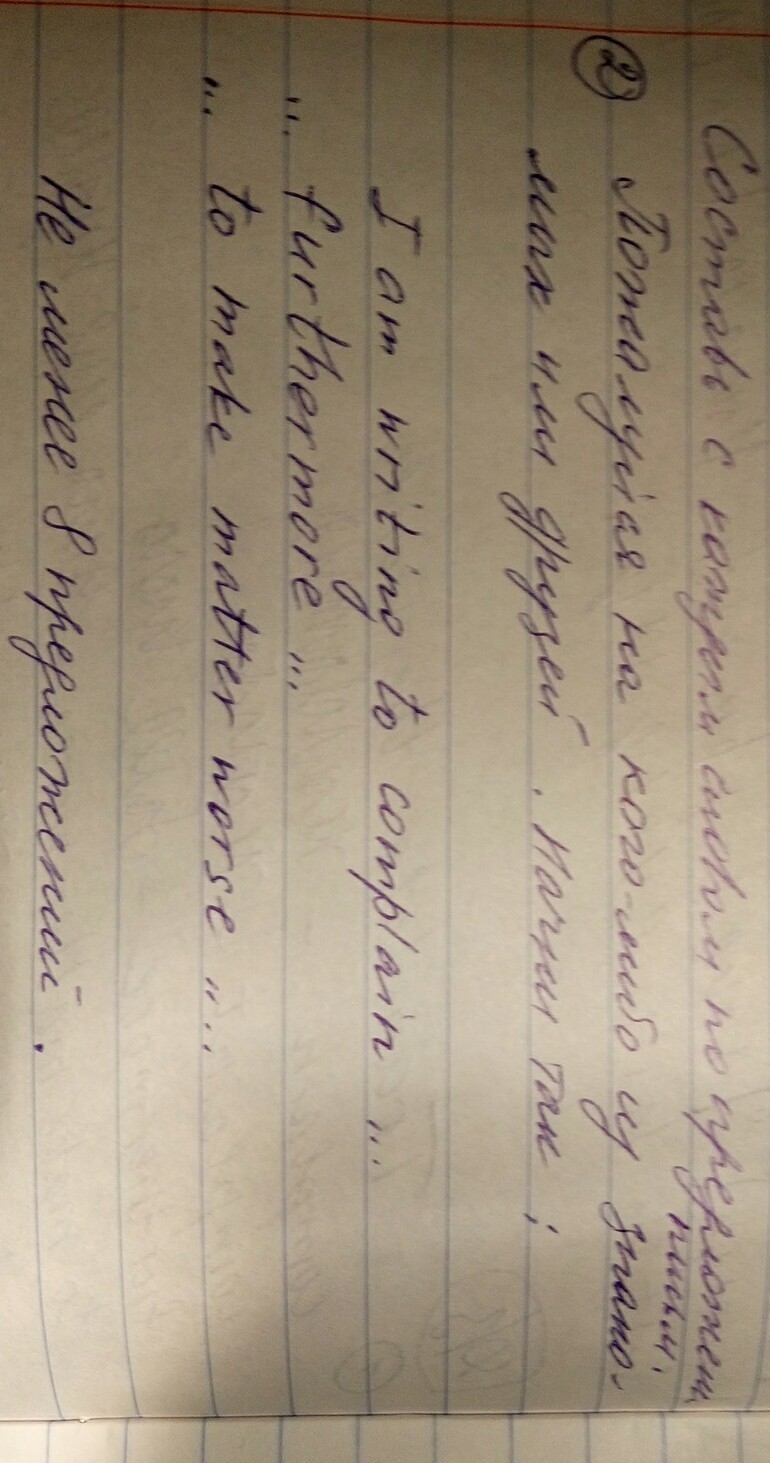 Составь с каждым словом по предложен
ниям.
② Пожалуйся на кого-либо из знако-
мых или друзей. Начни так:
I am writing to complain ...
... furthermore ...
... to make matter worse ...
Не менее 8 предложений.